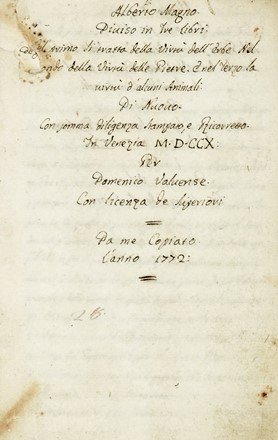 Alberto Magno.
Diviso in tre libri:
Nel primo si tratta della Virtù dell'Erbe. Nel
condo della Virtù delle Pietre. E nel terzo la
virtù d'alcuni Animali.
Di Nuovo.
Con somma diligenza stampato, e Ricorretto.
In Venezia M.D.CCX.
Per
Domenico Valuense.
Con licenza de Superiori
Da me Copiato.
L'anno 1772: